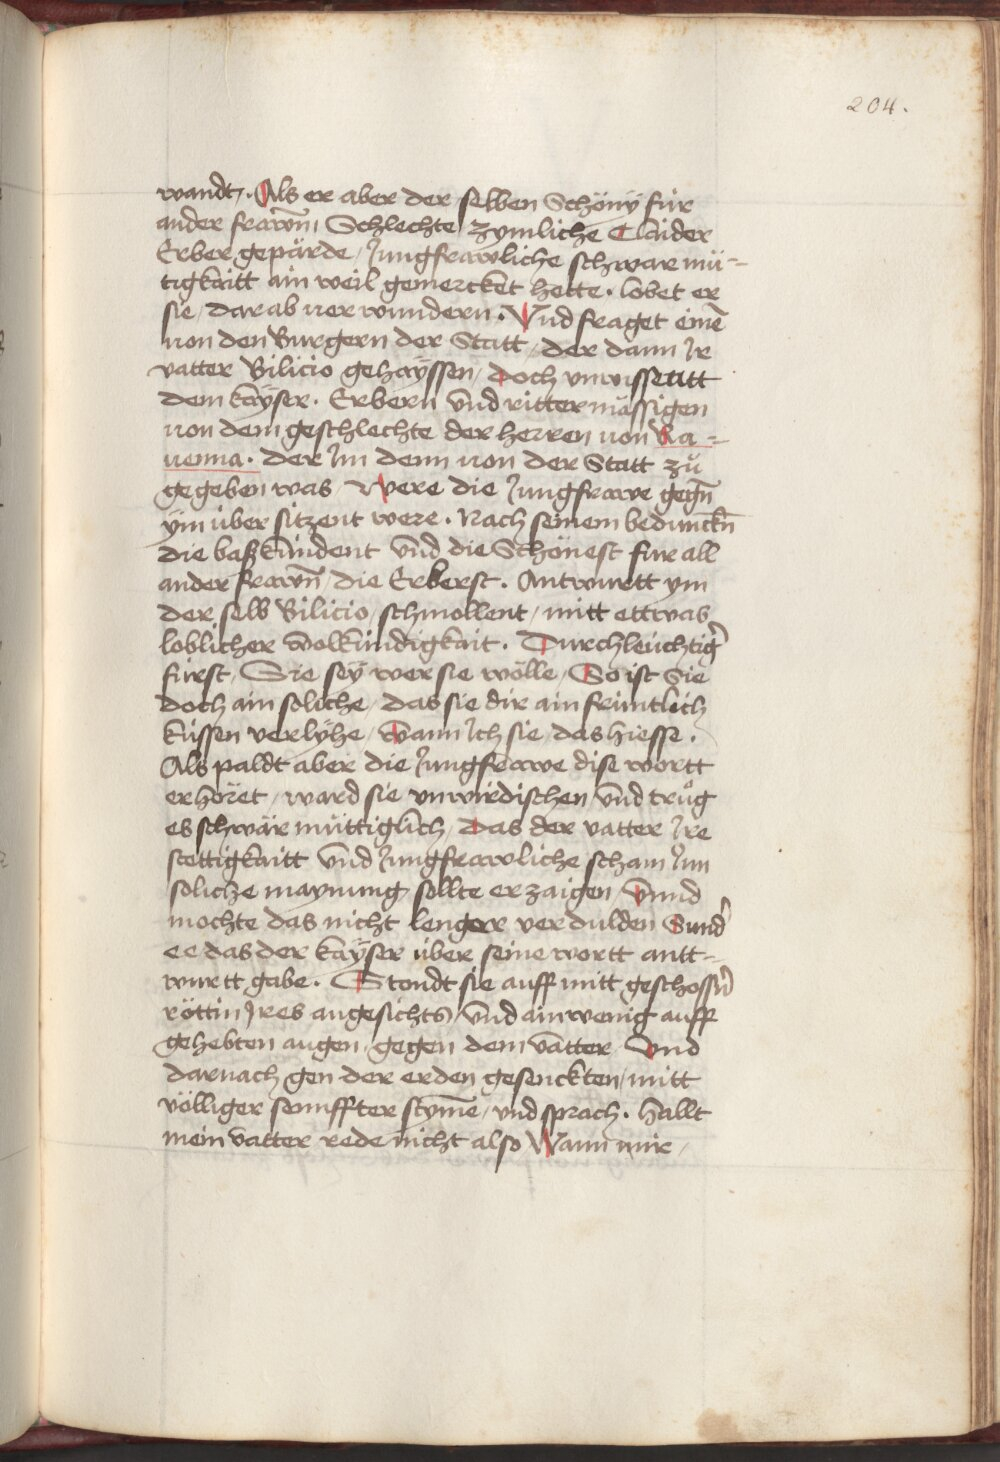 204.
wandt. Als er aber der selben Schöny für
ander frawen̄, Schlechte, zymliche Claider
Erber gepärde, Jungfrawliche schwarmü-
tigkaitt ain weil gemercket hette. lobet er
sie, darab verwundern. Vnd fraget einē
von den Burgern der Statt, der dann Jr
vatter Bilicio gehayssen, doch vnwissentt
dem kayser. Erbern vnd rittermässigen
von dem geschlechte der herren von Ra-
uenna. der Jm denn von der Statt zů
gegeben was, Were die Jungfrawe gegn̄
ym über sitzent were. Nach seinem bedunckn̄
die baß kündent vnd die Schönest für all
ander frawn̄, die Erberst. Antwurtt ym
der selb Bilicio, schmollent, mitt ettwas
loblicher Wolkündigkait. Durchleuchtiger
fürst, Sie sey wer sie wölle, So ist Sie
doch ain soliche, das sie dir ain früntlich
küssen verlyhe, Wann Ich sie, das hiesse.
Als paldt aber die Jungfrawe dise wortt
erhöret, ward sie vnwirdischen vnd trůg
es schwärmüttiglich, Das der vatter Jre
stettigkaitt vnd Jungfrawliche scham Jm
soliche maynung sollte erzaigen, Vnnd
mochte das nicht lenger verdulden Sunder
ee das der kayser über seine wortt antt-
wurtt gabe. Stondt sie auff mitt geschossner
röttin Jres angesichts, vnd ain wenig auff
gehebten augen, gegen dem vatter, Vnd
darnach gen der erden gesenckten, mitt
völliger sennffter stym̄e, vnd sprach. hallt
mein vatter rede nicht also Wann mir,